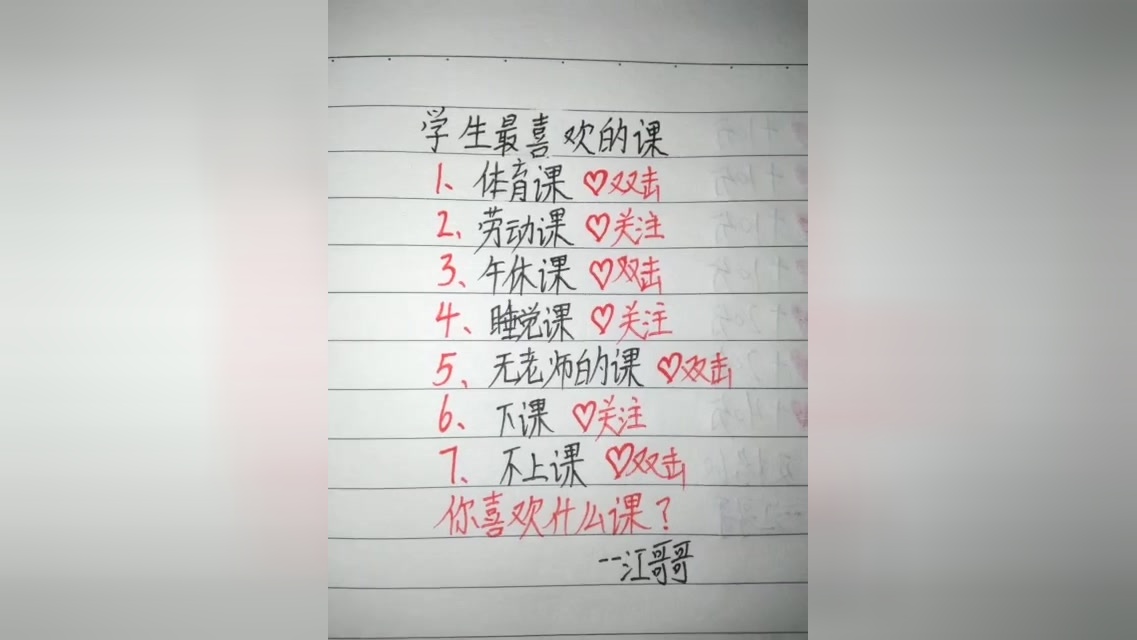 学生最喜欢的课
1、体育课♡双击
2、劳动课♡关注
3、午休课♡双击
4、睡觉课♡关注
5、无老师的课♡双击
6、下课♡关注
7、不上课♡双击
你喜欢什么课?
--江哥哥